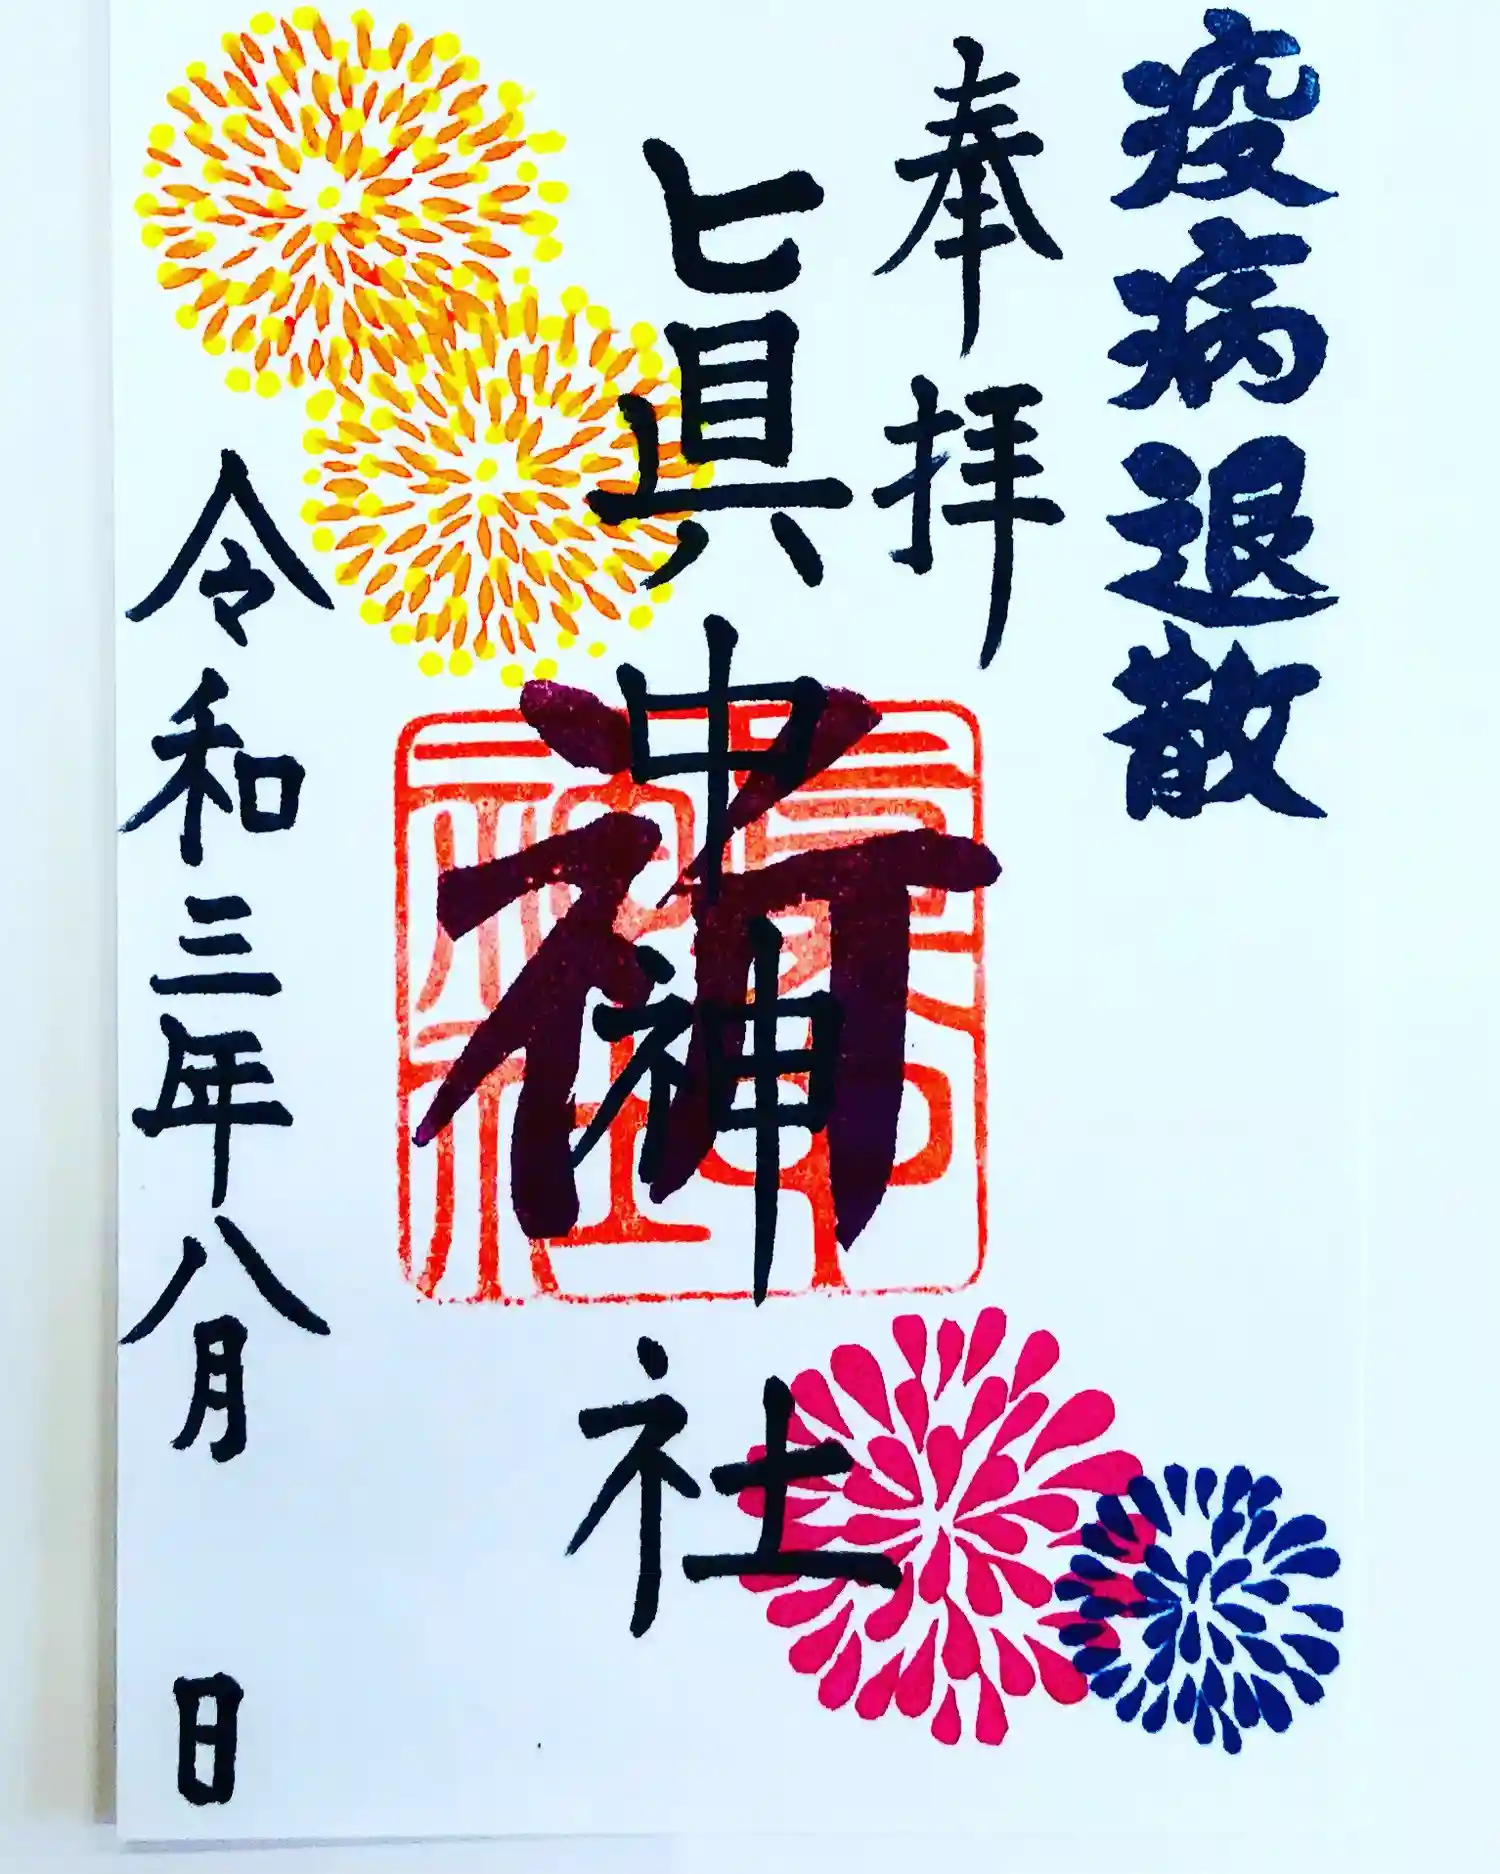 疫病退散
奉拝
眞中神社
祈
令和三年八月 日